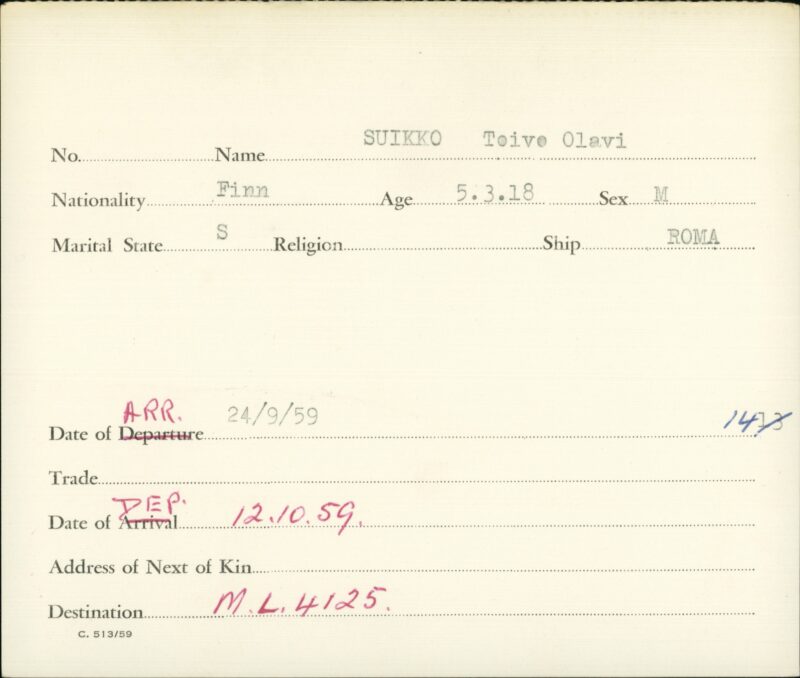 SUIKKO Toivo Olavi
No. Name
Nationality Finn Age 5.3.18 Sex M
Marital State S Religion Ship ROMA
ARR. 24/9/59
Date of Departure 14
Trade
DEP.
Date of Arrival 12.10.59.
Address of Next of Kin
Destination M.L. 4125.
C. 513/59